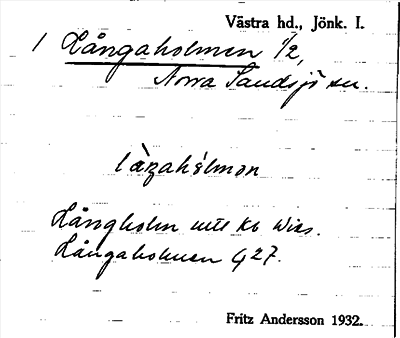 Västra hd., Jönk. l.
1 Långaholmen 1/2,
Norra Sandsjö sn.
làŋahólmən
Långholm utt kb Wies.
Långaholmen G 27.
Fritz Andersson 1932.